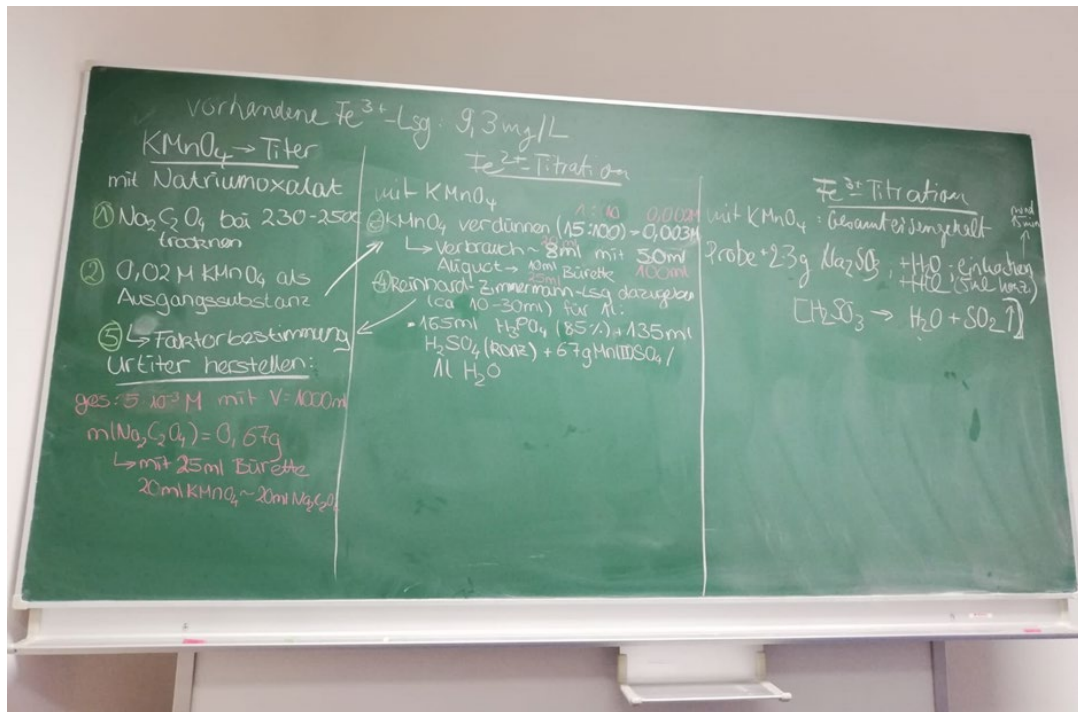 vorhandene Fe³⁺-Lsg: 9,3mg/L
KMnO₄→Titer
mit Natriumoxalat
① Na₂C₂O₄ bei 230-250C
trocknen
② 0,02 M KMnO₄ als
Ausgangssubstanz
⑤ ↳ Faktorbestimmung
Urtiter herstellen:
ges: 5·10⁻³ M mit V=1000ml
m(Na₂C₂O₄)=0,67g
↳ mit 25ml Bürette
20ml KMnO₄ ~ 20ml Na₂C₂O₄
Fe²⁺-Titration
mit KMnO₄
1:10 0,002M
③ KMnO₄ verdünnen (15:100) = 0,003M
↳ Verbrauch ~ 8ml mit 50ml
Aliquot → 10ml Bürette 100ml
25ml
④ Reinhard-Zimmermann-Lsg dazugeben
(ca 10-30ml) für 1l:
• 165ml H₃PO₄ (85%) + 135ml
H₂SO₄ (konz) + 67g Mn(II)SO₄ /
1l H₂O
Fe³⁺-Titration
mit KMnO₄ = Gesamteisengehalt
15min
Probe + 2.3g Na₂SO₃, +H₂O, einkochen
+HCl (5ml konz)
[H₂SO₃ → H₂O + SO₂↑]